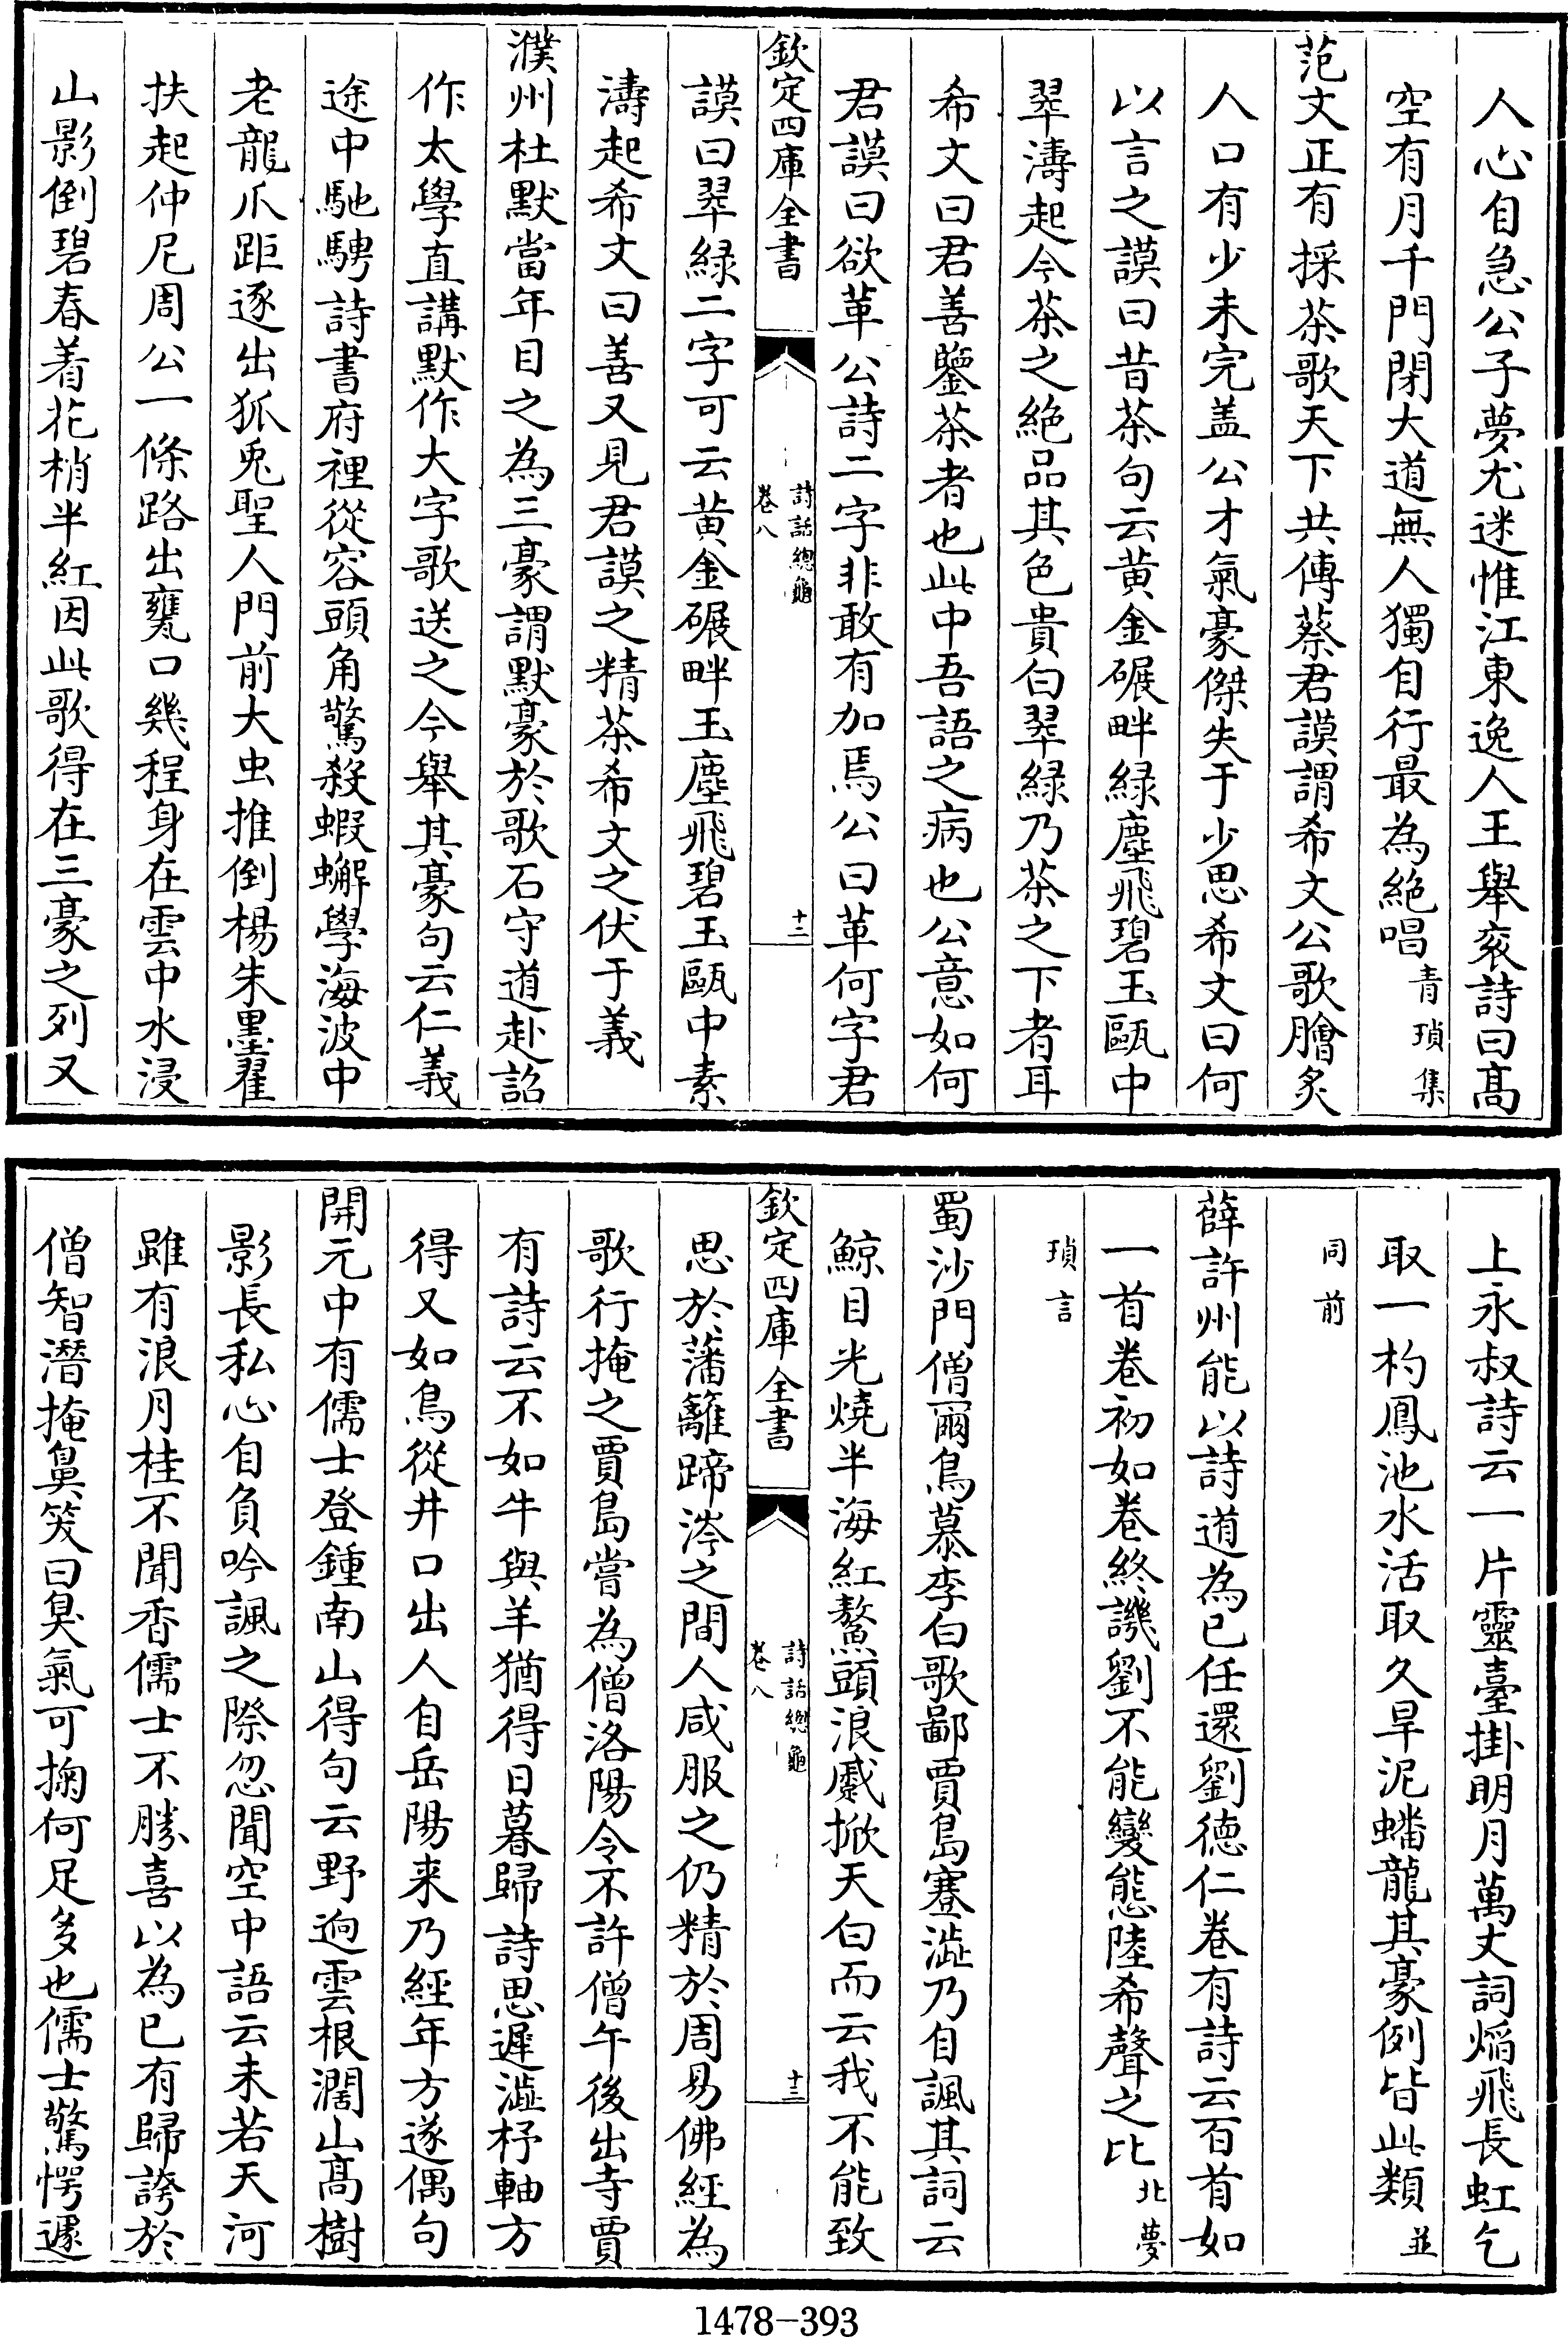 人心自急公子夢尤迷惟江東逸人王舉衮詩曰髙
空有月千門閉大道無人獨自行最為絶唱青瑣集
范文正有採茶歌天下共傳蔡君謨謂希文公歌膾炙
人口有少未完盖公才氣豪傑失于少思希文曰何
以言之謨曰昔茶句云黄金碾畔緑塵飛碧玉甌中
翠濤起今茶之絶品其色貴白翠緑乃茶之下者耳
希文曰君善鑒茶者也此中吾語之病也公意如何
君謨曰欲革公詩二字非敢有加焉公曰革何字君
欽定四庫全書
詩話總龜
卷八
十二
謨曰翠緑二字可云黄金碾畔玉塵飛碧玉甌中素
濤起希文曰善又見君謨之精茶希文之伏于義
濮州杜默當年目之為三豪謂默豪於歌石守道赴詔
作太學直講默作大字歌送之今舉其豪句云仁義
途中馳騁詩書府裡從容頭角驚殺蝦蠏學海波中
老龍爪距逐出狐兎聖人門前大虫推倒楊朱墨翟
扶起仲尼周公一條路出甕口幾程身在雲中水浸
山影倒碧春着花梢半紅因此歌得在三豪之列又
上永叔詩云一片靈臺掛明月萬丈詞熖飛長虹乞
取一杓鳳池水活取久旱泥蟠龍其豪例皆此類並
同前
薛許州能以詩道為已任還劉徳仁卷有詩云百首如
一首卷初如卷終譏劉不能變態陸希聲之比北夢
瑣言
蜀沙門僧爾鳥慕李白歌鄙賈島蹇澁乃自諷其詞云
鯨目光燒半海紅鰲頭浪蹙掀天白而云我不能致
欽定四庫全書
詩話總龜
卷八
十三
思於藩籬蹄涔之間人咸服之仍精於周易佛經為
歌行掩之賈島嘗為僧洛陽令不許僧午後出寺賈
有詩云不如牛與羊猶得日暮歸詩思遲澁杼軸方
得又如鳥從井口出人自岳陽来乃經年方遂偶句
開元中有儒士登鍾南山得句云野逈雲根濶山髙樹
影長私心自負吟諷之際忽聞空中語云未若天河
雖有浪月桂不聞香儒士不勝喜以為已有歸誇於
僧智潛掩鼻笑曰臭氣可掬何足多也儒士驚愕遽
1478-393